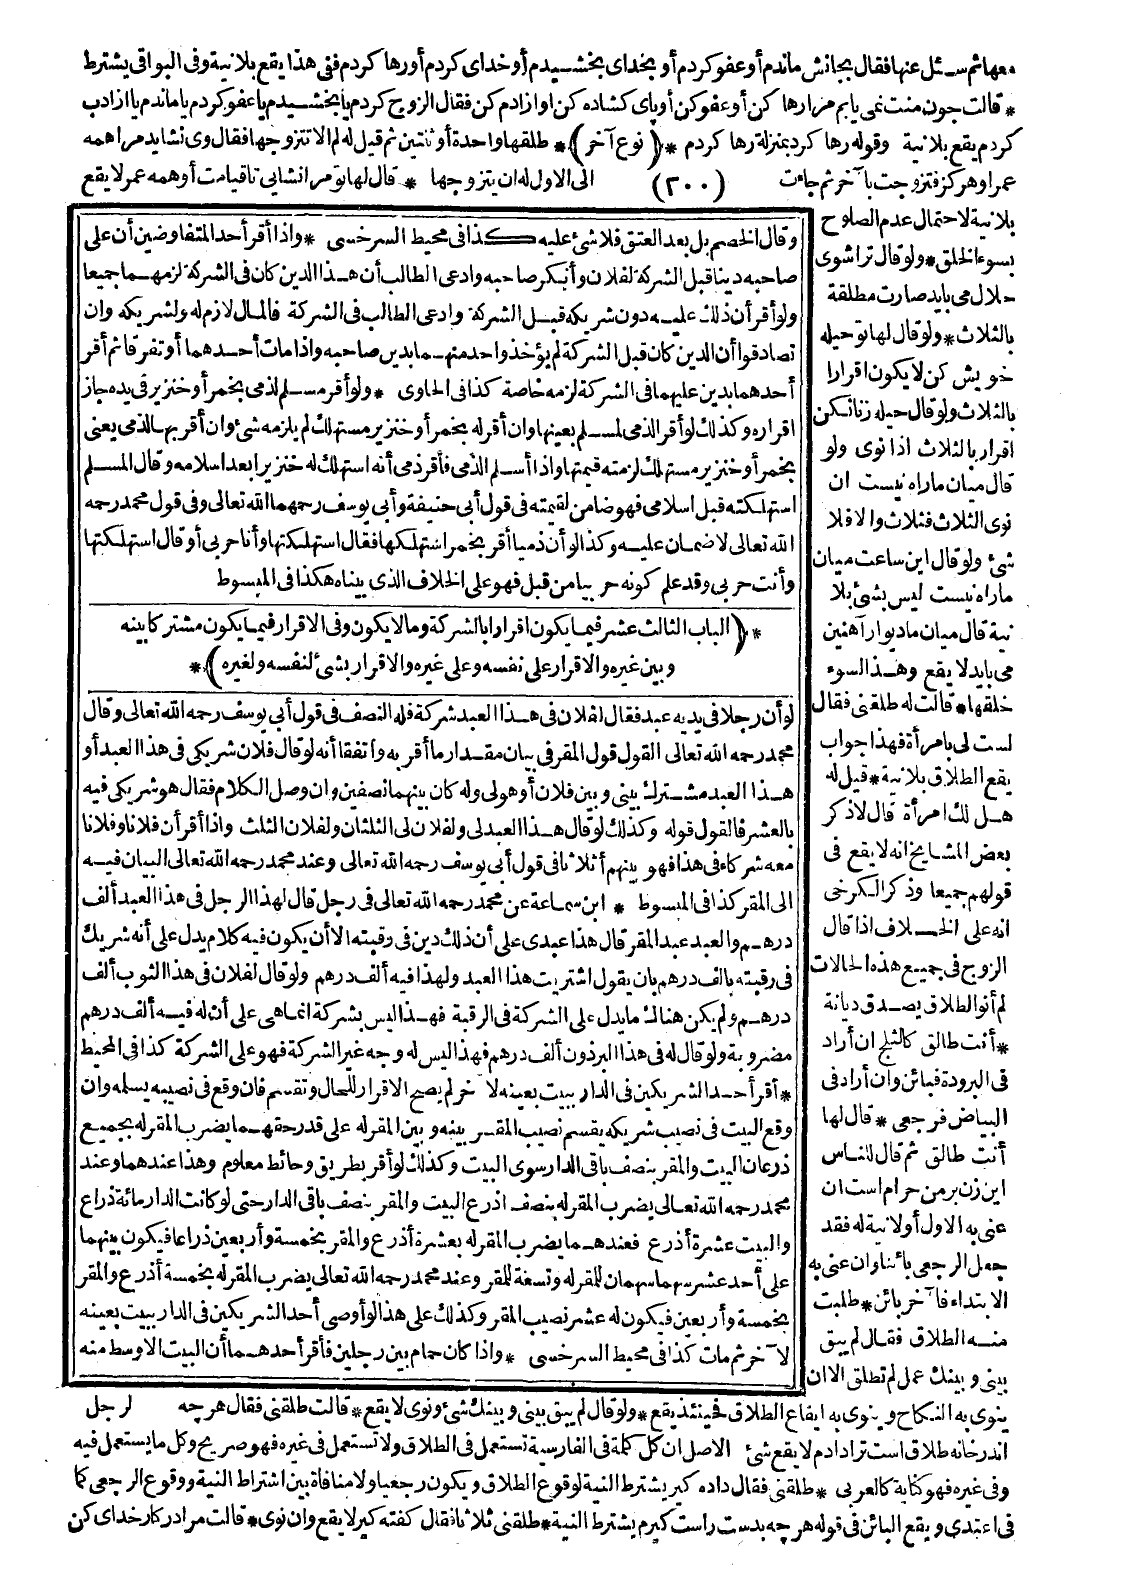 معها ثم سئل عنها فقال بجانش ماندم أو عفو كردم أو بخداى بخشيدم أو خداى كردم أو رها كردم ففى هذا يقع بلا نية وفى البواقى يشترط
* قالت چون منت نمى يابم مرا رها كن أو عفو كن أو باى كشاده كن او ازادم كن فقال الزوج كردم يا بخشيدم يا عفو كردم يا ماندم يا ازاد
كردم يقع بلا نية وقوله رها كرد بمنزلة رها كردم *(نوع آخر)* طلقها واحدة أو ثنتين ثم قيل له لم لا تتزوجها فقال وى نشايد مرا همه
عمر او هركز فتزوجت بآخر ثم جاءت (٢٠٠) الى الاول له ان يتزوجها * قال لها تو مرا نشايى تا قيامت أو همه عمر لا يقع
بلا نية لاحتمال عدم الصلوح
بسوء الخلق * ولو قال ترا شوى
حلال مى بايد صارت مطلقة
بالثلاث * ولو قال لها تو حيله
خويش كن لا يكون اقرارا
بالثلاث ولو قال حيله زنان كن
اقرار بالثلاث اذا نوى ولو
قال ميان ما راه نيست ان
نوى الثلاث فثلاث والا فلا
شئ ولو قال اين ساعت ميان
ما راه نيست ليس بشئ بلا
نية قال ميان ما ديوار آهنين
مى بايد لا يقع وهذا السوء
خلقها * قالت له طلقنى فقال
لست لى بامرأة فهذا جواب
يقع الطلاق بلا نية * قيل له
هل لك امرأة قال لا ذكر
بعض المشايخ انه لا يقع فى
قولهم جميعا وذكر الكرخى
انه على الخلاف اذا قال
الزوج فى جميع هذه الحالات
لم أنو الطلاق يصدق ديانة
* أنت طالق كالثلج ان أراد
فى البرودة فبائن وان أراد فى
البياض فرجعى * قال لها
أنت طالق ثم قال للناس
اين زن بر من حرام است ان
عنى به الاول أو لا نية له فقد
جعل الرجعى بائنا وان عنى به
الابتداء فآخر بائن * طلبت
منه الطلاق فقال لم يبق
بينى وبينك عمل لم تطلق الا ان
ينوى به النكاح وينوى به ايقاع الطلاق فحينئذ يقع * ولو قال لم يبق بينى وبينك شئ ونوى لا يقع * قالت طلقنى فقال هرچه لرجل
اندر خانه طلاق است ترا دادم لا يقع شئ الاصل ان كل كلمة فى الفارسية تستعمل فى الطلاق ولا تستعمل فى غيره فهو صريح وكل ما يستعمل فيه
وفى غيره فهو كناية كالعربى * طلقنى فقال داده كير يشترط النية لوقوع الطلاق ويكون رجعيا ولا منافاة بين اشتراط النية ووقوع الرجعى كما
فى اعتدى ويقع البائن فى قوله هرچه بدست راست كيرم يشترط النية * طلقنى ثلاثا فقال كفته كير لا يقع وان نوى * قالت مرا در كار خداى كن
وقال الخصم بل بعد العتق فلا شئ عليه كذا فى محيط السرخسى * واذا أقر أحد المتفاوضين أن على
صاحبه دينا قبل الشركة لفلان وأنكر صاحبه وادعى الطالب أن هذا الدين كان فى الشركة لزمهما جميعا
ولو أقر أن ذلك عليه دون شريكه قبل الشركة وادعى الطالب فى الشركة فالمال لازم له ولشريكه وان
تصادقوا أن الدين كان قبل الشركة لم يؤخذ واحد منهما بدين صاحبه واذا مات أحدهما أو تفرقا ثم أقر
أحدهما بدين عليهما فى الشركة لزمه خاصة كذا فى الحاوى * ولو أقر مسلم لذمى بخمر أو خنزير فى يده جاز
اقراره وكذلك لو أقر الذمى لمسلم بعينها وان أقر له بخمر أو خنزير مستهلك لم يلزمه شئ وان أقر بها لذمى يعنى
بخمر أو خنزير مستهلك لزمته قيمتها واذا أسلم الذمى فأقر ذمى أنه استهلك له خنزيرا بعد اسلامه وقال المسلم
استهلكته قبل اسلامى فهو ضامن لقيمته فى قول أبى حنيفة وأبى يوسف رحمهما الله تعالى وفى قول محمد رحمه
الله تعالى لا ضمان عليه وكذا لو أن ذميا أقر بخمر استهلكها فقال استهلكتها وأنا حربى أو قال استهلكتها
وأنت حربى وقد علم كونه حربيا من قبل فهو على الخلاف الذى بيناه هكذا فى المبسوط
*(الباب الثالث عشر فيما يكون اقرارا بالشركة وما لا يكون وفى الاقرار فيما يكون مشتركا بينه
وبين غيره والاقرار على نفسه وعلى غيره والاقرار بشئ لنفسه ولغيره)*
لو أن رجلا فى يديه عبد فقال لفلان فى هذا العبد شركة فله النصف فى قول أبى يوسف رحمه الله تعالى وقال
محمد رحمه الله تعالى القول قول المقر فى بيان مقدار ما أقر به واتفقا أنه لو قال فلان شريكى فى هذا العبد أو
هذا العبد مشترك بينى وبين فلان أو هو لى وله كان بينهما نصفين وان وصل الكلام فقال هو شريكى فيه
بالعشر فالقول قوله وكذلك لو قال هذا العبد لى ولفلان لى الثلثان ولفلان الثلث واذا أقر أن فلانا وفلانا
معه شركاء فى هذا فهو بينهم أثلاثا فى قول أبى يوسف رحمه الله تعالى وعند محمد رحمه الله تعالى البيان فيه
الى المقر كذا فى المبسوط * ابن سماعة عن محمد رحمه الله تعالى فى رجل قال لهذا الرجل فى هذا العبد ألف
درهم والعبد عبد المقر قال هذا عبدى على أن ذلك دين فى رقبته الا أن يكون فيه كلام يدل على أنه شريك
فى رقبته بالف درهم بان يقول اشتريت هذا العبد ولهذا فيه ألف درهم ولو قال لفلان فى هذا الثوب ألف
درهم ولم يكن هناك ما يدل على الشركة فى الرقبة فهذا ليس بشركة انما هى على أن له فيه ألف درهم
مضروبة ولو قال له فى هذا البرذون ألف درهم فهذا ليس له وجه غير الشركة فهو على الشركة كذا فى المحيط
* أقر أحد الشريكين فى الدار ببيت بعينه لآخر لم يصح الاقرار للحال وتقسم فان وقع فى نصيبه يسلمه وان
وقع البيت فى نصيب شريكه يقسم نصيب المقر بينه وبين المقر له على قدر حقهما يضرب المقر له بجميع
ذرعان البيت والمقر بنصف باقى الدار سوى البيت وكذلك لو أقر بطريق وحائط معلوم وهذا عندهما وعند
محمد رحمه الله تعالى يضرب المقر له بنصف اذرع البيت والمقر بنصف باقى الدار حتى لو كانت الدار مائة ذراع
والبيت عشرة أذرع فعندهما يضرب المقر له بعشرة أذرع والمقر بخمسة وأربعين ذراعا فيكون بينهما
على أحد عشر سهما سهمان للمقر له وتسعة للمقر وعند محمد رحمه الله تعالى يضرب المقر له بخمسة أذرع والمقر
بخمسة وأربعين فيكون له عشر نصيب المقر وكذلك على هذا لو أوصى أحد الشريكين فى الدار ببيت بعينه
لآخر ثم مات كذا فى محيط السرخسى * واذا كان حمام بين رجلين فأقر أحدهما أن البيت الاوسط منه